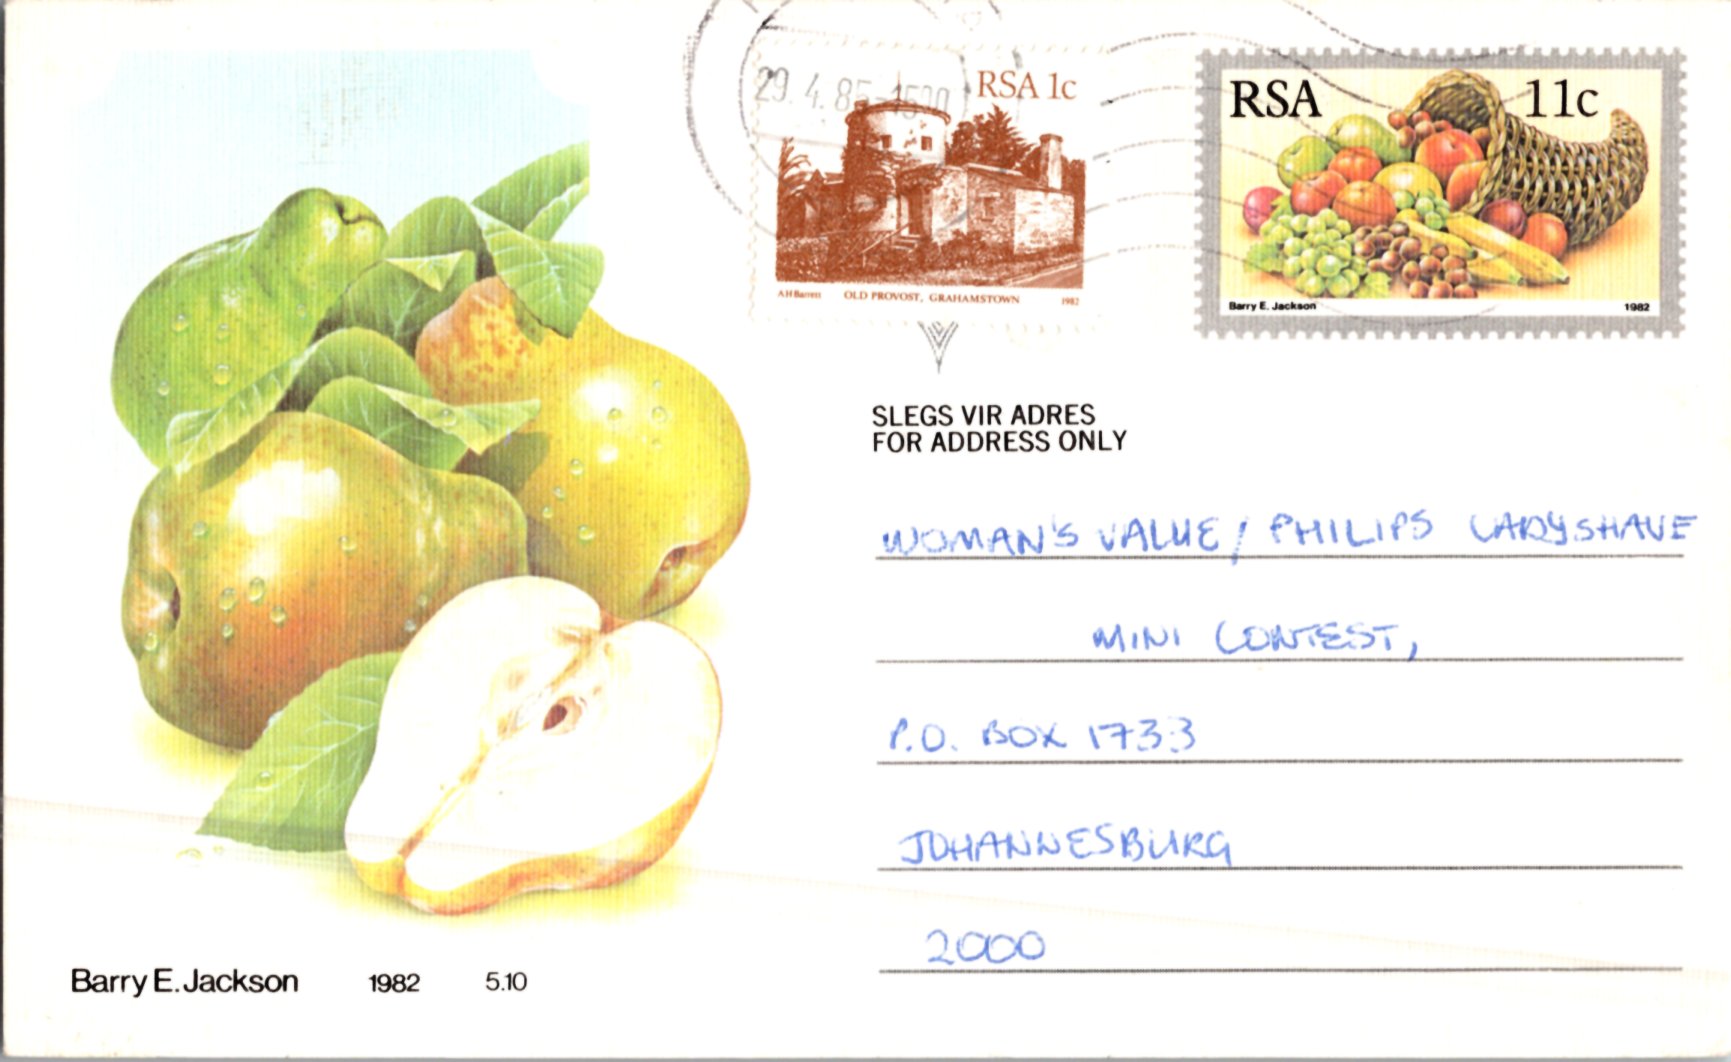 29.4.85-1500
RSA 1c
AHBarrett OLD PROVOST, GRAHAMSTOWN 1982
RSA 11c
Barry E. Jackson 1982
SLEGS VIR ADRES
FOR ADDRESS ONLY
WOMAN'S VALUE / PHILIPS LADYSHAVE
MINI CONTEST,
P.O. BOX 1733
JOHANNESBURG
2000
Barry E. Jackson 1982 5.10